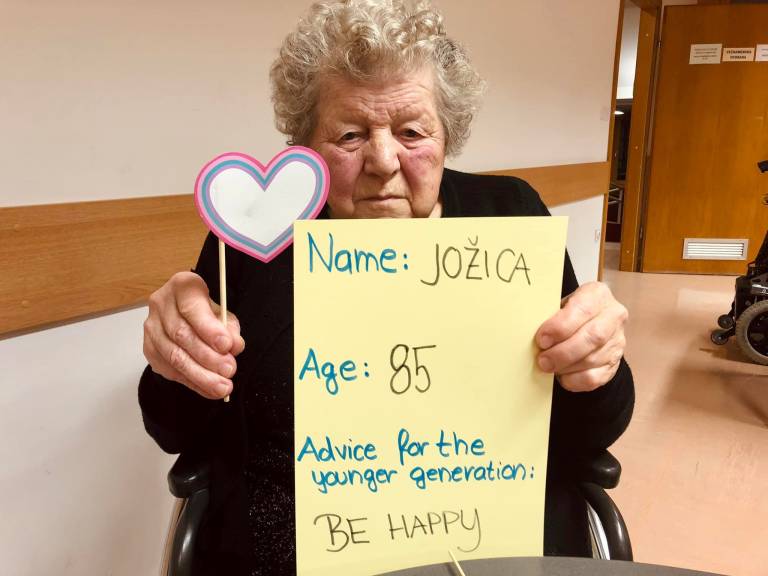 Name: JOŽICA
Age: 85
Advice for the
younger generation:
BE HAPPY